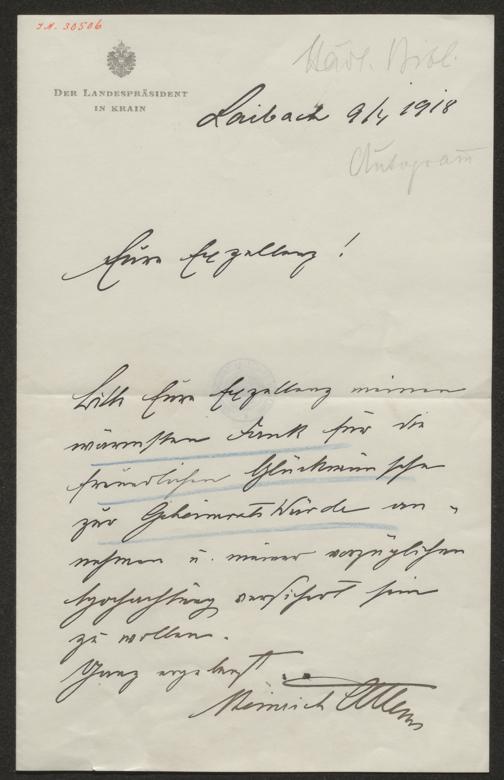 J.N. 30506
Städt. Bibl.
DER LANDESPRÄSIDENT
IN KRAIN
Laibach 9/4 1918
Autogramm
Eure Exzellenz!
Bitte Eure Exzellenz meinen
wärmsten Dank für die
freundlichen Glückwünsche
zur Geheimrats Würde an-
nehmen u. meiner vorzüglichen
Hochachtung versichert sein
zu wollen.
Ganz ergebenst
Heinrich Attems